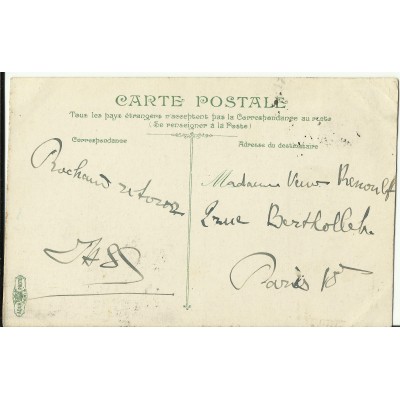 CARTE POSTALE
Tous les pays étrangers n'acceptent pas la Correspondance au recto
(Se renseigner à la Poste)
Correspondance
Adresse du destinataire
Prochain retour
Madame Veuve Renoulf
2 rue Berthollet
Paris